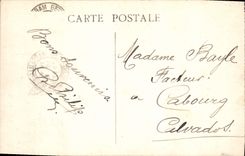 CARTE POSTALE
Bons Souvenirs
Madame Bayle
Facteur
a
Cabourg
Calvados.